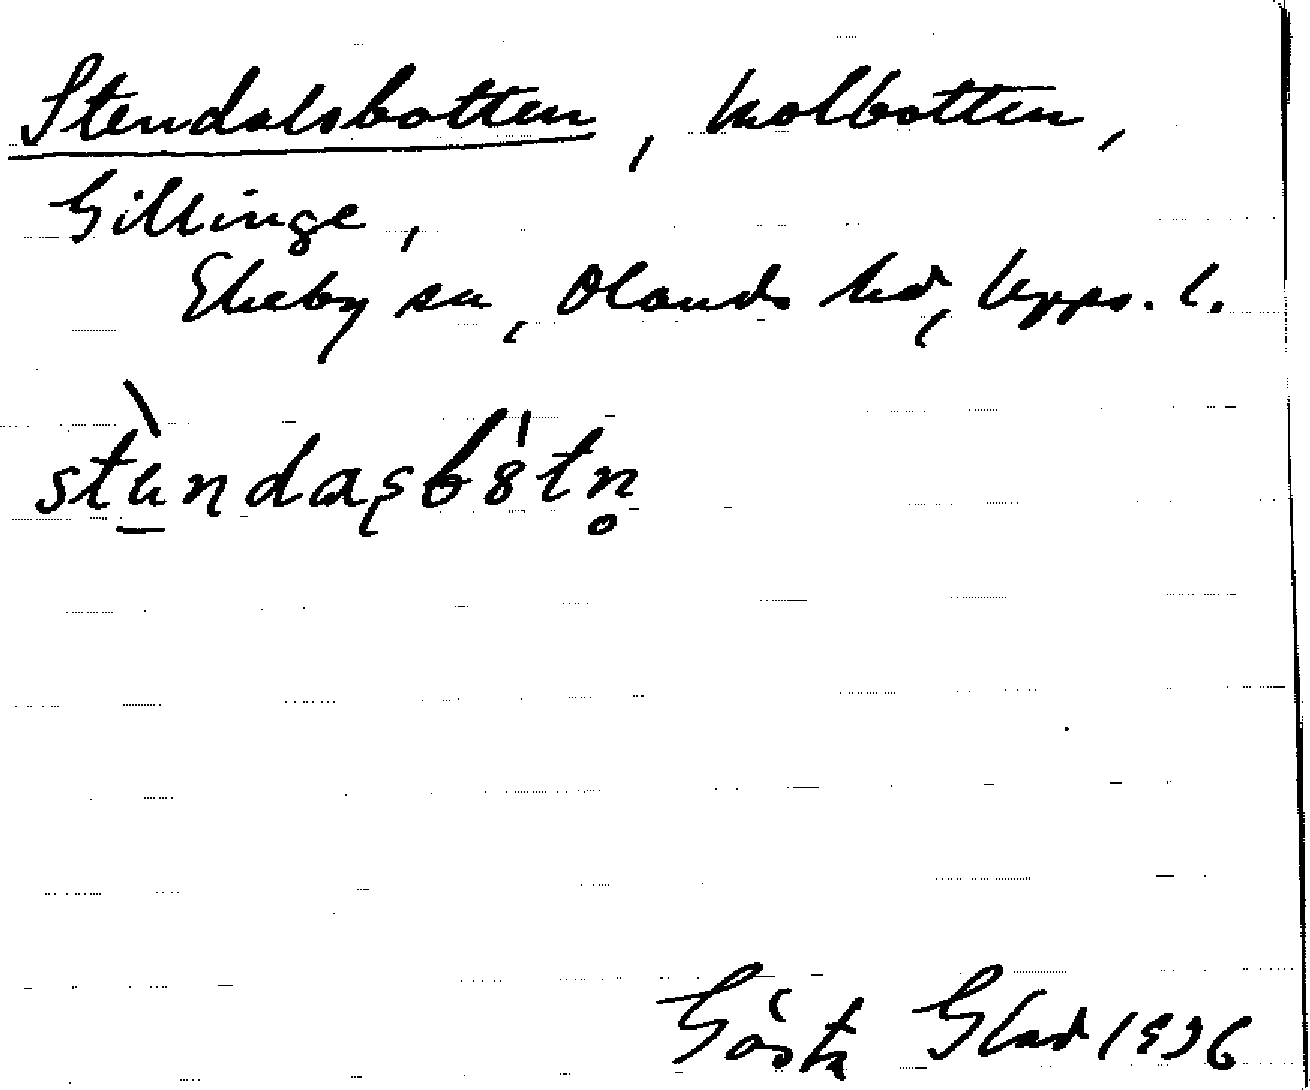 Stendalsbotten, kolbotten,
Gillinge,
Ekeby sn, Olands hd, Upps. l.
Gösta Glad 1936